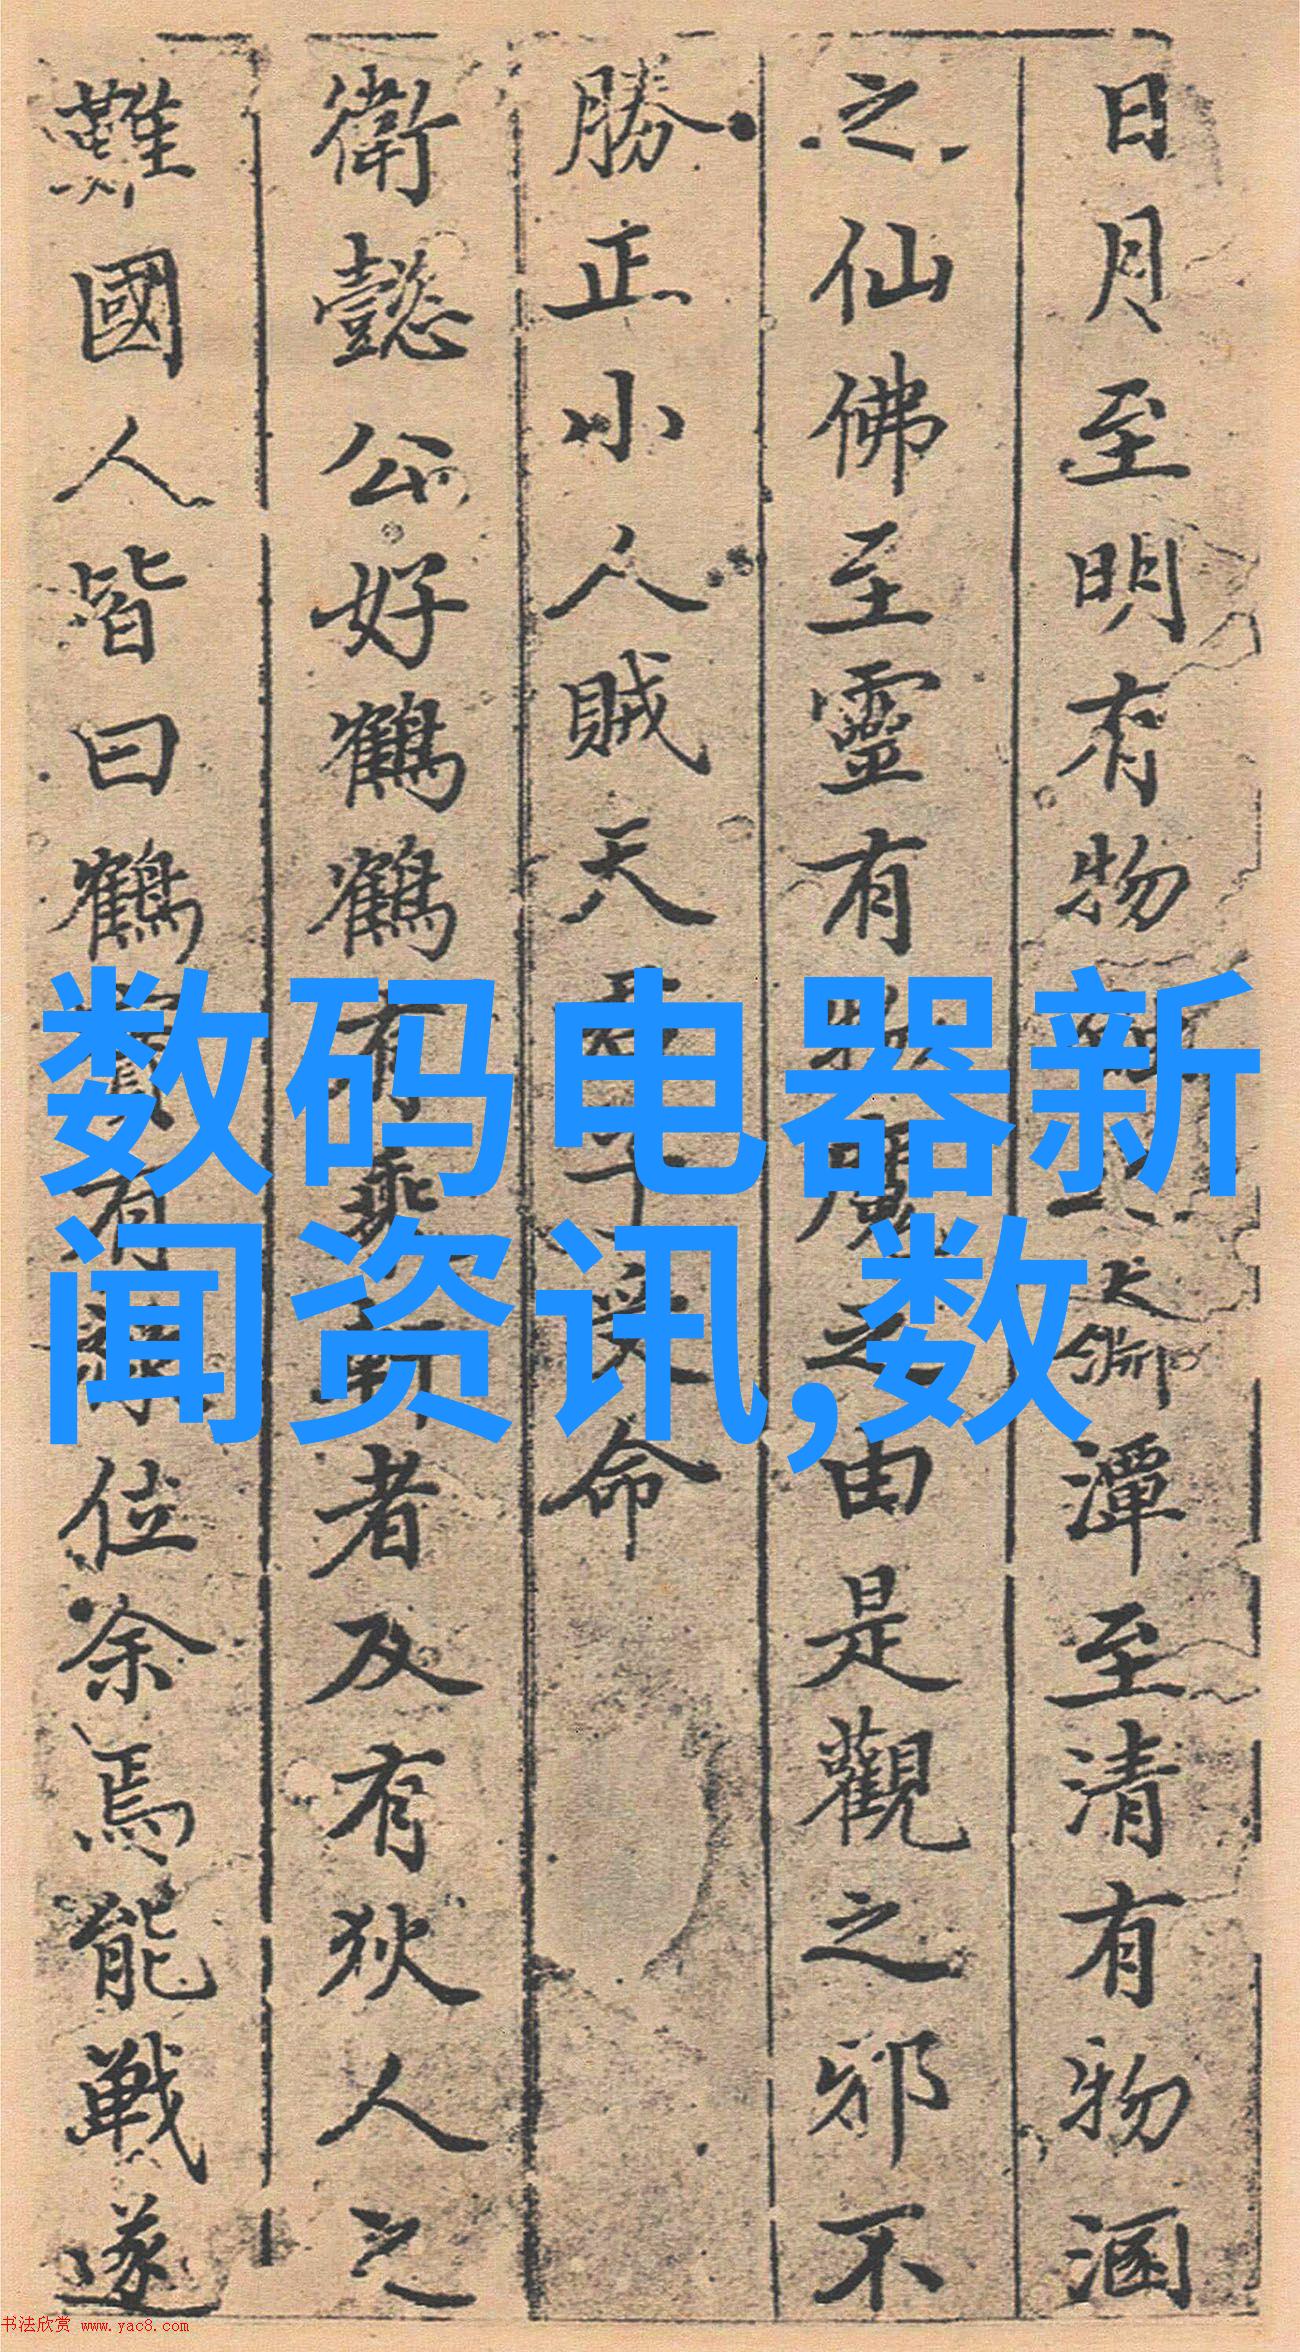 日月至明有物大澤潭至清有物涵
之仙佛至靈有魔之由是觀之邪不
勝正小人賊天命
衛懿公好鶴鶴有乘軒者及有狄人之
難國人皆曰鶴實有祿位余焉能戰遂
数码电器新
闻资讯,数
书法欣赏 www.yac8.com